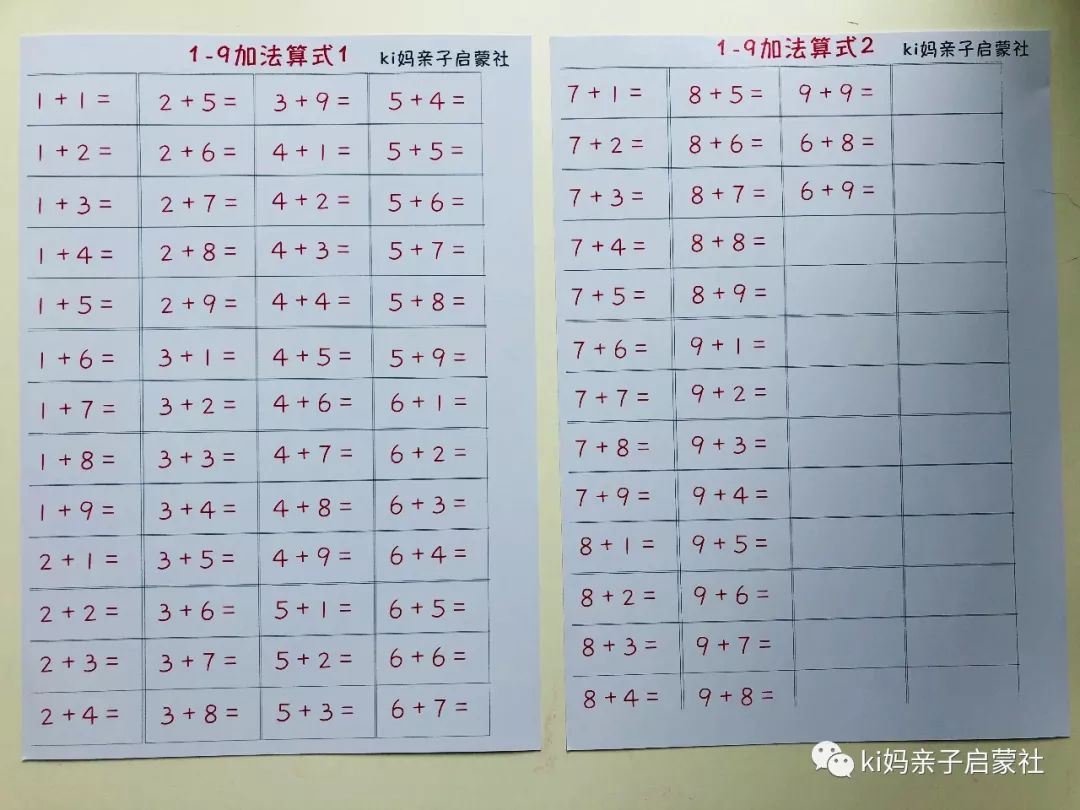 1-9加法算式1 ki妈亲子启蒙社
1+1= 2+5= 3+9= 5+4=
1+2= 2+6= 4+1= 5+5=
1+3= 2+7= 4+2= 5+6=
1+4= 2+8= 4+3= 5+7=
1+5= 2+9= 4+4= 5+8=
1+6= 3+1= 4+5= 5+9=
1+7= 3+2= 4+6= 6+1=
1+8= 3+3= 4+7= 6+2=
1+9= 3+4= 4+8= 6+3=
2+1= 3+5= 4+9= 6+4=
2+2= 3+6= 5+1= 6+5=
2+3= 3+7= 5+2= 6+6=
2+4= 3+8= 5+3= 6+7=
1-9加法算式2 ki妈亲子启蒙社
7+1= 8+5= 9+9=
7+2= 8+6= 6+8=
7+3= 8+7= 6+9=
7+4= 8+8=
7+5= 8+9=
7+6= 9+1=
7+7= 9+2=
7+8= 9+3=
7+9= 9+4=
8+1= 9+5=
8+2= 9+6=
8+3= 9+7=
8+4= 9+8=
ki妈亲子启蒙社